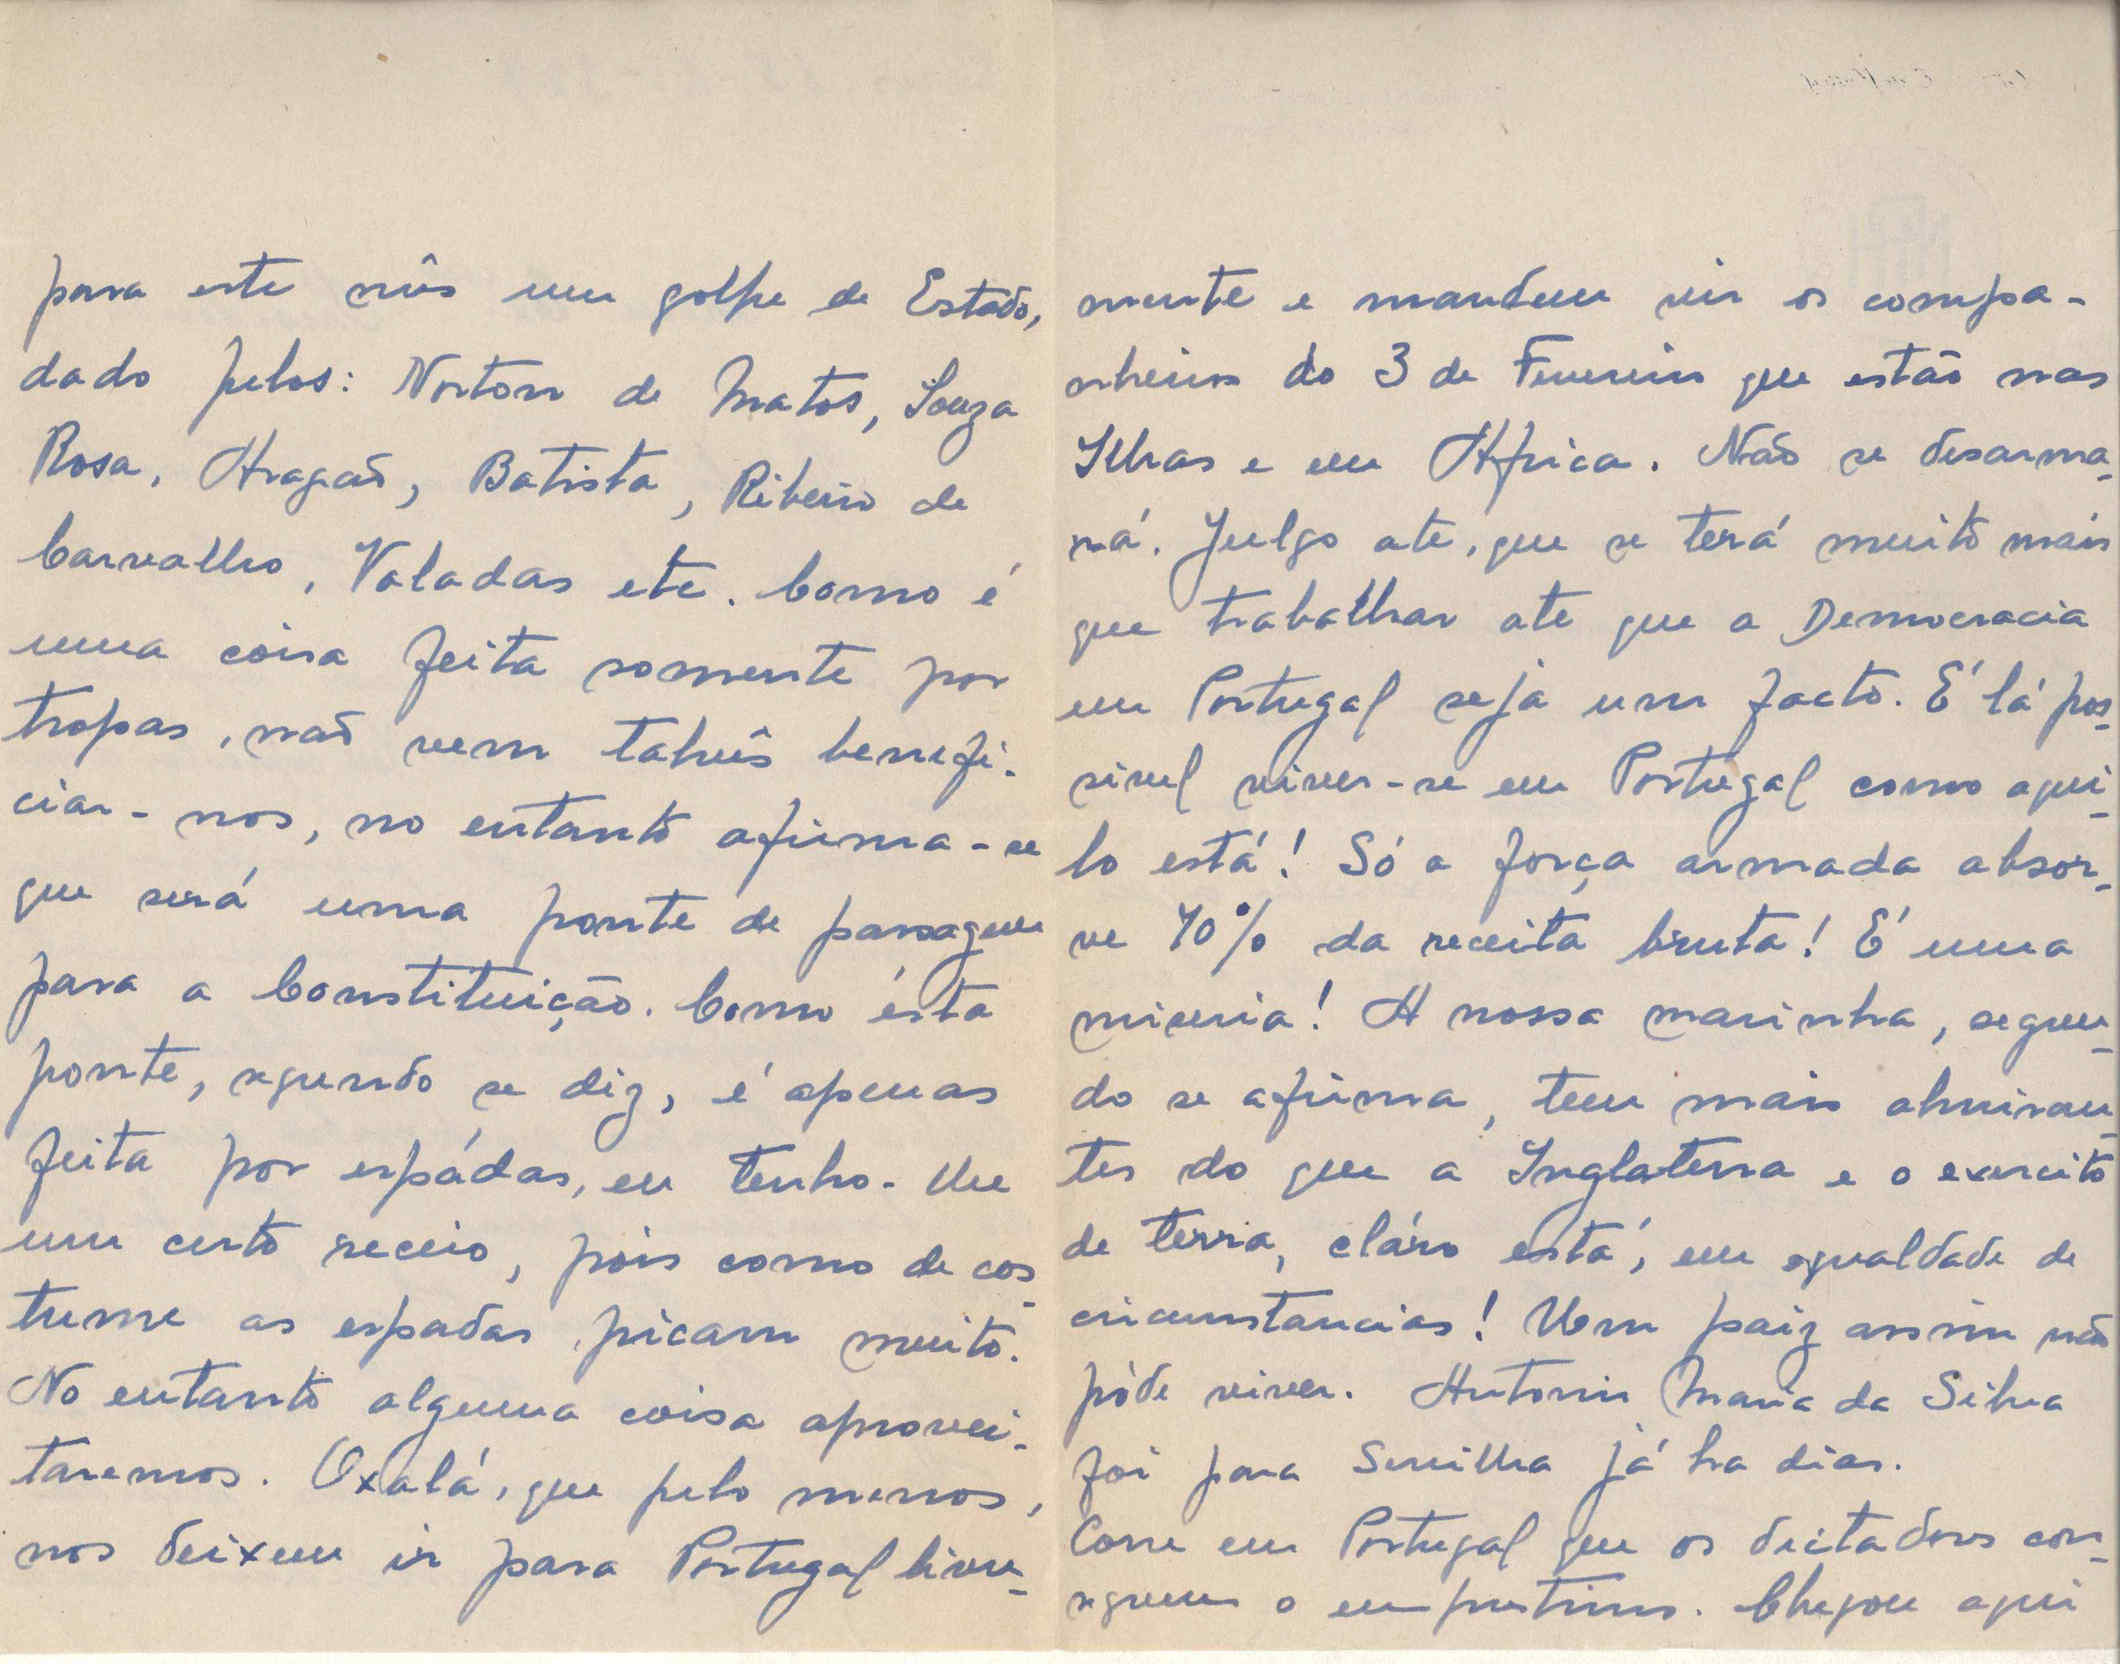 para este mês um golpe de Estado,
dado pelos: Norton de Matos, Souza
Rosa, Aragão, Batista, Ribeiro de
Carvalho, Valadas etc. Como é
uma coisa feita somente por
tropas, não vem talvês benefi-
ciar-nos, no entanto afirma-se
que será uma ponte de passagem
para a Constituição. Como ésta
ponte, segundo se diz, é apenas
feita por espádas, eu tenho-lhe
um certo receio, pois como de cos-
tume as espadas picam muito.
No entanto alguma coisa aprovei-
taremos. Oxalá, que pelo menos,
nos deixem ir para Portugal livre-
mente e mandem vir os compa-
nheiros do 3 de Fevereiro que estão nas
Ilhas e em Africa. Não se desarma-
rá. Julgo ate, que se terá muito mais
que trabalhar ate que a Democracia
em Portugal seja um facto. É lá pos-
sivel viver-se em Portugal como aqui-
lo está! Só a força armada absor-
ve 70% da receita bruta! É uma
miseria! A nossa marinha, segun-
do se afirma, tem mais almiran-
tes do que a Inglaterra e o exercito
de terra, cláro está, em egualdade de
circunstancias! Um paiz assim não
póde viver. Antonio Maria da Silva
foi para Sevilha já ha dias.
Corre em Portugal que os dictadores con-
seguem o emprestimo. Chegou aqui